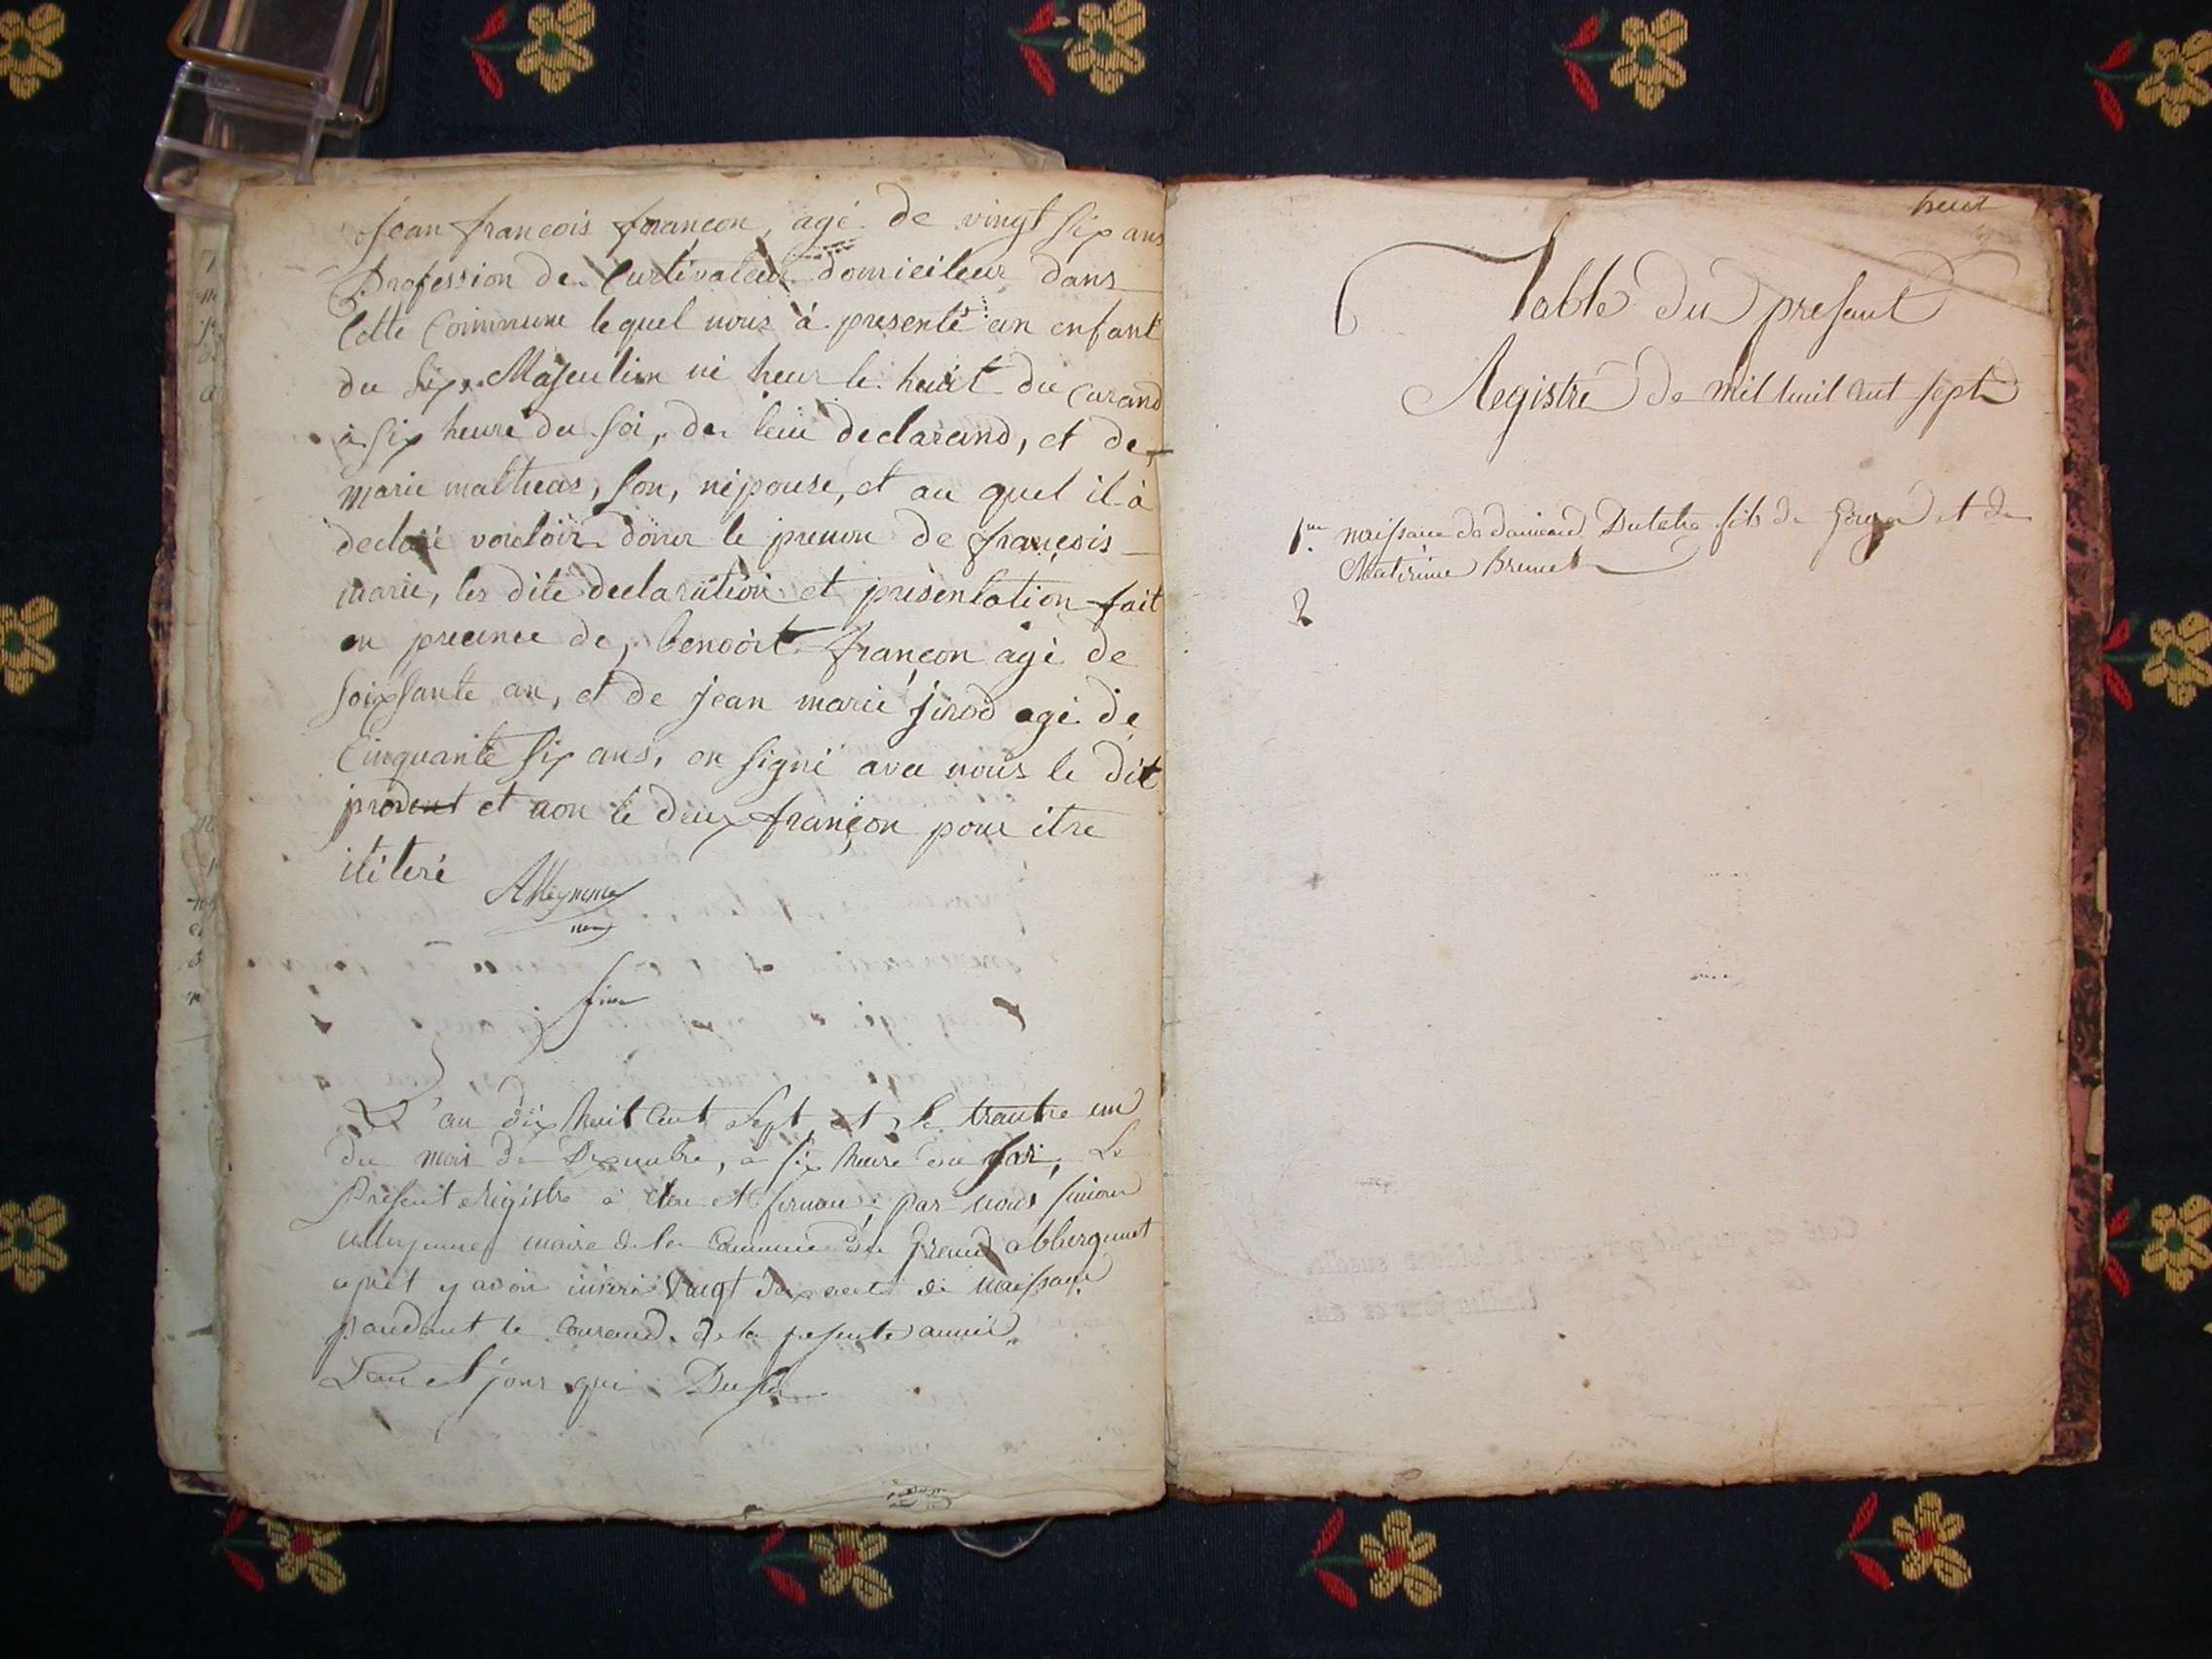 Jean françois françon, agé de vingt six ans
Profession de Curtivateur domicileur dans
Cette Commune lequel nous à presenté un enfant
du sixe Masculin né heur le huit du Curand
à six heure du soi, de leui declarand, et de
marie matheas, son, népouse, et au quel il à
declaré vouloir doner le prenon de françois
marie, les dite declaration et présentation fait
en precence de, benoort françon agé de
soixsante an, et de jean marie jirod agé de
Cinquante six ans, on signé avec nous le dit
et non le deux françon pour itre
ititeré
fin
L'an dix huit Cent Sept et le trantre un
du mois de Dexembre, a six heure du soi, Le
Present Régistre à clou et par nous simon
maire de la Commune du Grand abbergement
apret y avoir inséré Vingt acte de naissance
pandant le Courand de la presente année
L'an et jour que Dusu
heuit
Table du presant
Registre de mil huit cent sept
1re naissance de Dutetre fils de et de
Materine Brunet
2